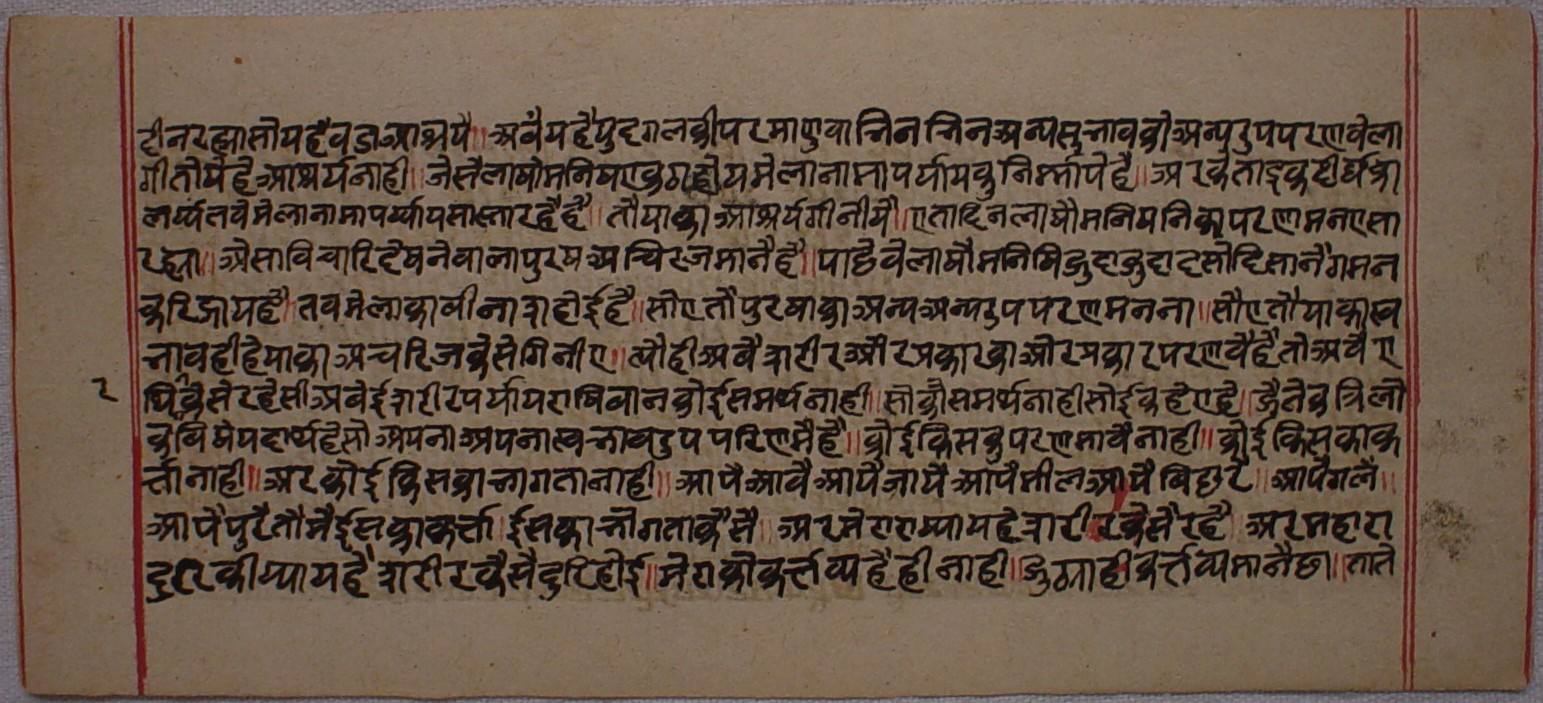 टी न रह्या सो यह वडा आश्चर्य॥ अवै यहै पुद्गल की परमाणु वा भिन भिन अन्य सुभाव वको अन्य रुप परणवे ला
गी तो यह आश्चर्य नाही॥ जेसै लाषो मनिष एकठा होय मेला नामा पर्याय कु निर्मापे है॥ अर केताइक दीर्घ का
ल पर्य्यंत वे मेला नामा पर्य्याय सास्ता रहै है॥ तौ याका आश्चर्य गीनी यै॥ एता दिन लाषौ मनिष निका परणमन एसा
रह्या॥ ऐसा विचारि देषने वाला पुरष अचिरज मानै है॥ पाछै वे लाषौ मनिषि जुदा जुदा दसो दिसा नै गमन
करि जाय है॥ तव मेला का वी नाश होई है॥ सो ए तौ पुरषा का अन्य अन्य रुप परणमन ना॥ सौ ए तौ या का स्व
भाव ही है या का अचरिज केसे गिनीए॥ त्यौ ही अवै शरीर और प्रकार का ओर प्रकार परणवै है तो अवै ए
थिर केसे रहैसी अवे ई शरीर पर्याय राषिवा न कोई समर्थ नाही॥ सो कौ समर्थ नाही सोई कहे ए है॥ जैते क त्रिलो
क विषे पदार्थ है सो अपना अपना स्वभाव रुप परिणमै है॥ कोई किस कु परणमावै नाही॥ कोई किस का क
र्त्ता नाही॥ अर कोई किस का भोगता नाही॥ आपै आवै आपै जायै आपै मील आपै विछुरै॥ आपै गलै॥
आपै पुरै तौ मै ई सका कर्त्ता॥ ई सका भोगता कैसै॥ अर मेरा राष्या यह शरीर केसै रहै॥ अर म्हारा
दुर की याय है शरीर कैसै दुरि होई॥ मेरा को कर्त्तव्य है ही नाही॥ जुठा ही कर्त्तव्य मानै छा॥ तातै
२